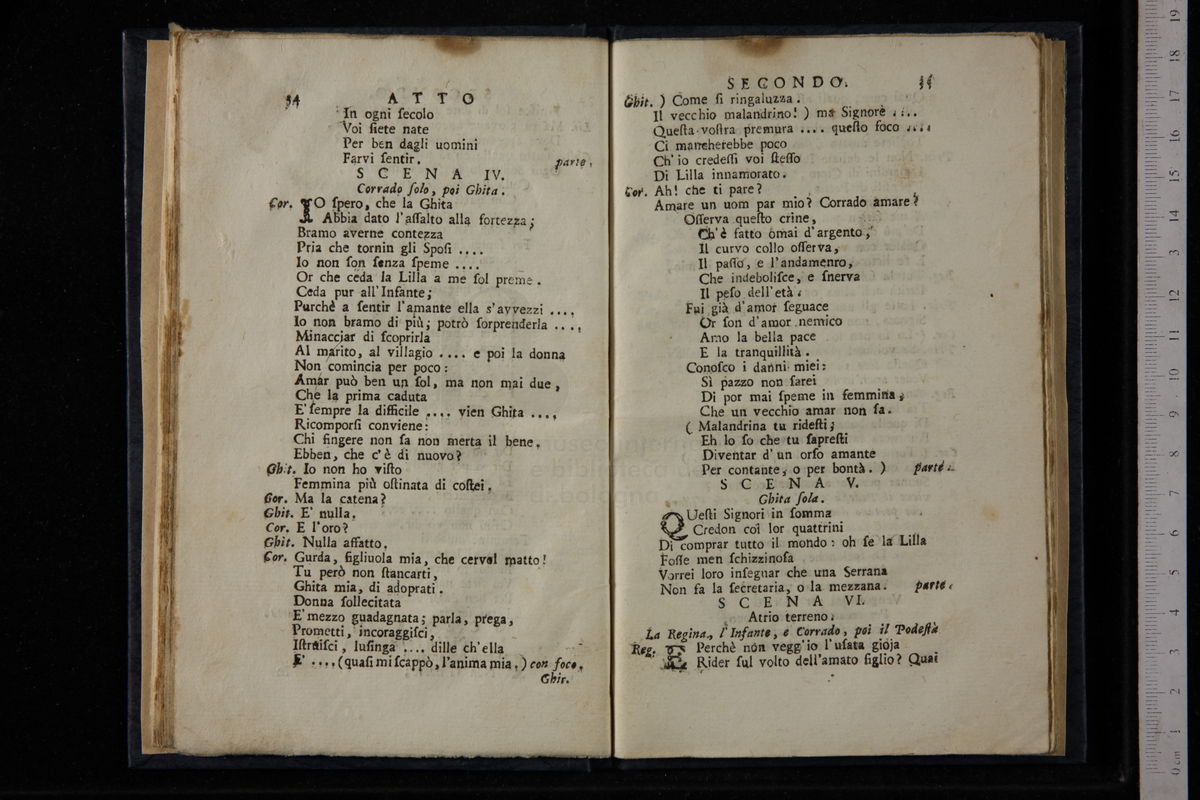 34 ATTO
In ogni ſecolo
Voi ſiete nate
Per ben dagli uomini
Farvi ſentir. parte.
SCENA IV.
Corrado ſolo, poi Ghita.
Cor. IO ſpero, che la Ghita
Abbia dato l'aſſalto alla fortezza;
Bramo averne contezza
Pria che tornin gli Spoſi ....
Io non ſon ſenza ſpeme ....
Or che ceda la Lilla a me ſol preme.
Ceda pur all'Infante;
Purchè a ſentir l'amante ella s'avvezzi ....
Io non bramo di più; potrò ſorprenderla ....
Minacciar di ſcoprirla
Al marito, al villagio .... e poi la donna
Non comincia per poco:
Amar può ben un ſol, ma non mai due,
Che la prima caduta
E' ſempre la difficile .... vien Ghita ....
Ricomporſi conviene:
Chi fingere non ſa non merta il bene.
Ebben, che c'è di nuovo?
Ghit. Io non ho viſto
Femmina più oſtinata di coſtei.
Cor. Ma la catena?
Ghit. E' nulla.
Cor. E l'oro?
Ghit. Nulla affatto.
Cor. Gurda, figliuola mia, che cervel matto!
Tu però non ſtancarti,
Ghita mia, di adoprati.
Donna ſollecitata
E' mezzo guadagnata; parla, prega,
Prometti, incoraggiſci,
Iſtruiſci, luſinga .... dille ch'ella
E' .... (quaſi mi ſcappò, l'anima mia.) con foco.
Ghit.
SECONDO. 35
Ghit. ) Come ſi ringaluzza.
Il vecchio malandrino! ) ma Signore ....
Queſta voſtra premura .... queſto foco ....
Ci mancherebbe poco
Ch'io credeſſi voi ſteſſo
Di Lilla innamorato.
Cor. Ah! che ti pare?
Amare un uom par mio? Corrado amare?
Oſſerva queſto crine,
Ch'è fatto omai d'argento,
Il curvo collo oſſerva,
Il paſſo, e l'andamenro,
Che indeboliſce, e ſnerva
Il peſo dell'età.
Fui già d'amor ſeguace
Or ſon d'amor nemico
Amo la bella pace
E la tranquillità.
Conoſco i danni miei:
Sì pazzo non ſarei
Di por mai ſpeme in femmina,
Che un vecchio amar non ſa.
( Malandrina tu rideſti;
Eh lo ſo che tu ſapreſti
Diventar d'un orſo amante
Per contante, o per bontà. ) parte.
SCENA V.
Ghita ſola.
QUeſti Signori in ſomma
Credon coi lor quattrini
Di comprar tutto il mondo: oh ſe la Lilla
Foſſe men ſchizzinoſa
Vorrei loro inſegnar che una Serrana
Non fa la ſecretaria, o la mezzana. parte.
SCENA VI.
Atrio terreno.
La Regina, l'Infante, e Corrado, poi il Podeſtà
Reg. E Perchè non vegg'io l'uſata gioja
Rider ſul volto dell'amato figlio? Quai